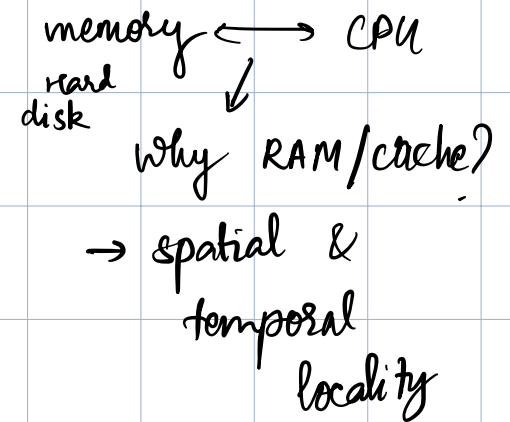 memory ⟷ CPU
Hard
disk
Why RAM/cache?
→ spatial &
temporal
locality